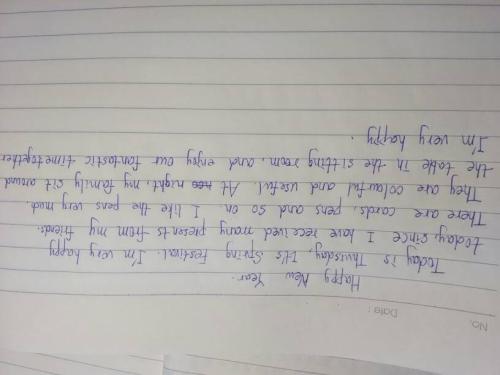 No.
Date:
Happy New Year.
Today is Thursday, It's Spring Festival. I'm very happy
today, since I have received many presents from my friends.
There are cards, pens and so on. I like the pens very much.
They are colourful and useful. At night, my family sit around
the table in the sitting room, and enjoy our fantastic time together
I'm very happy.